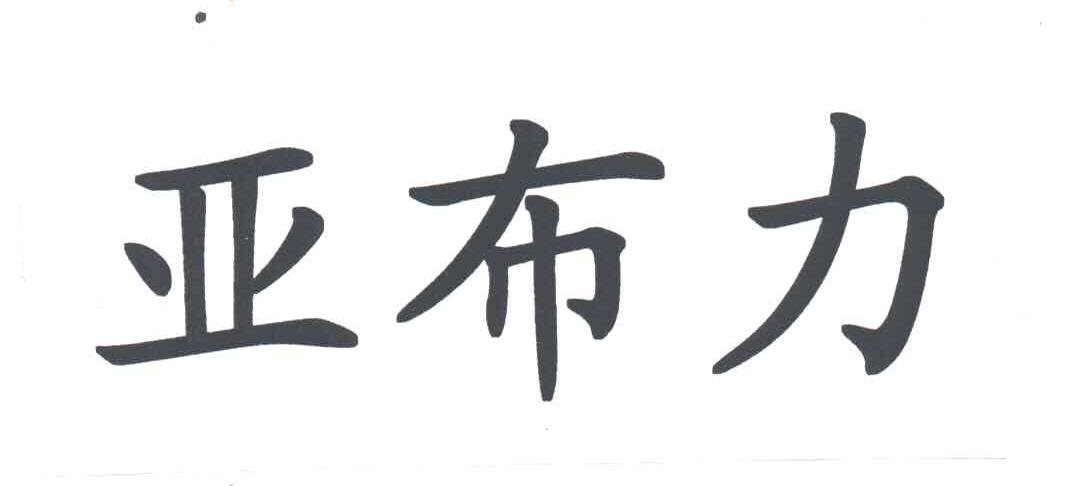 亚布力